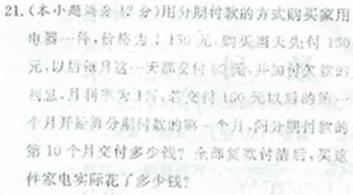 21.(本小题满分 12 分)用分期付款的方式购买家用
电器一件,价格为 1 150 元,购买当天先付 150
元,以后每月这一天都交付 50 元,并加付欠款的
利息,月利率为 1%,若交付 150 元以后的第一
个月开始算分期付款的第一个月,问分期付款的
第 10 个月交付多少钱? 全部贷款付清后,买这
件家电实际花了多少钱?